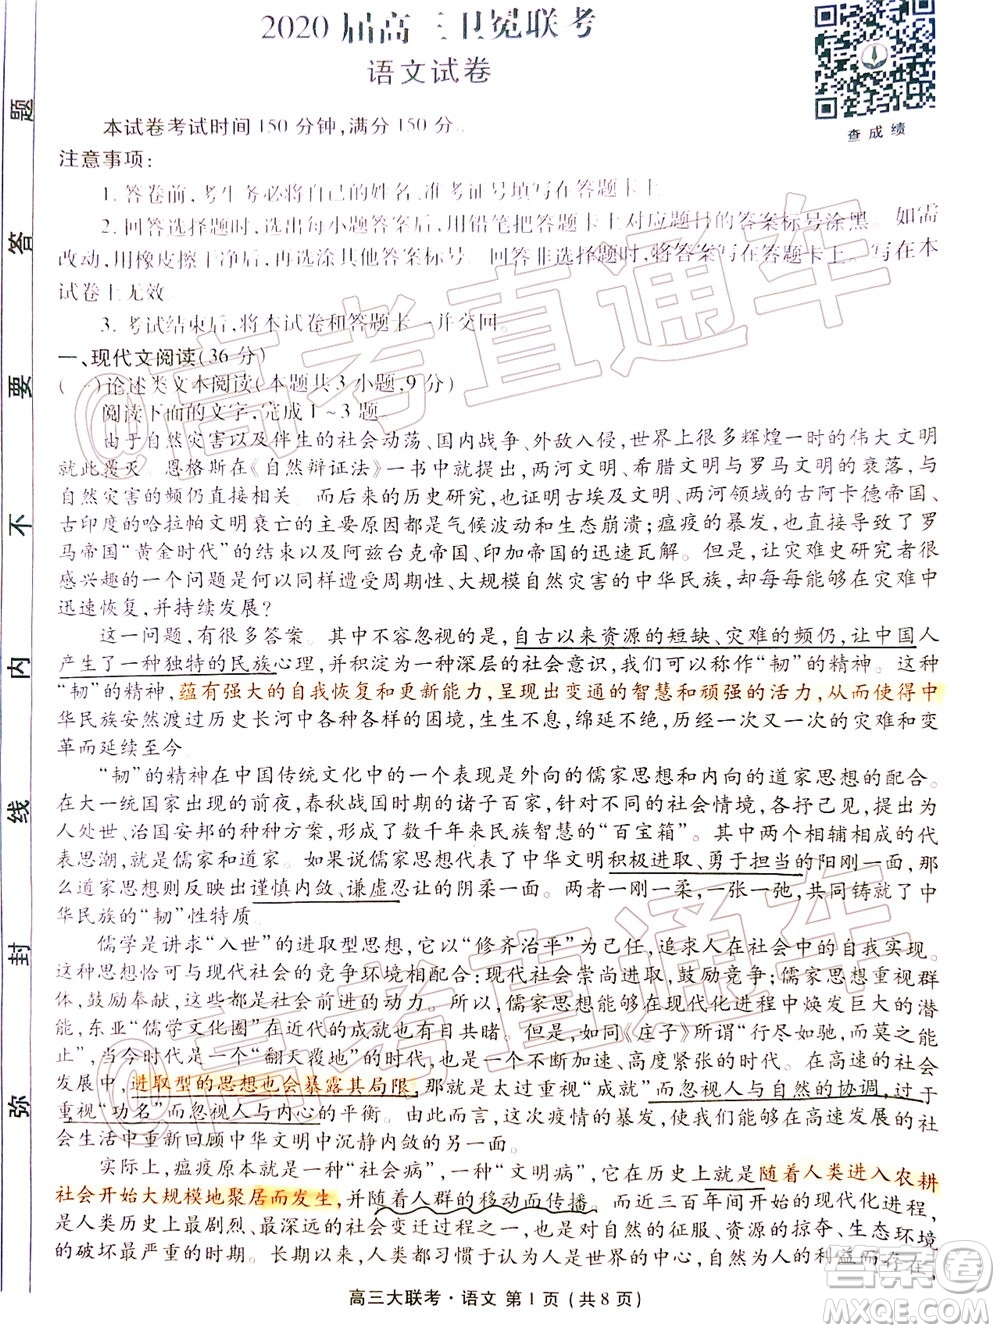 2020届高三卫冕联考
语文试卷
查成绩
本试卷考试时间150分钟,满分150分。
注意事项:
1.答卷前,考生务必将自己的姓名、准考证号填写在答题卡上
2.回答选择题时,选出每小题答案后,用铅笔把答题卡上对应题目的答案标号涂黑。如需
改动,用橡皮擦干净后,再选涂其他答案标号。回答非选择题时,将答案写在答题卡上。写在本
试卷上无效
3.考试结束后,将本试卷和答题卡一并交回。
一、现代文阅读(36分)
(一)论述类文本阅读(本题共3小题,9分)
阅读下面的文字,完成1~3题。
由于自然灾害以及伴生的社会动荡、国内战争、外敌入侵,世界上很多辉煌一时的伟大文明
就此覆灭。恩格斯在《自然辩证法》一书中就提出,两河文明、希腊文明与罗马文明的衰落,与
自然灾害的频仍直接相关。而后来的历史研究,也证明古埃及文明、两河领域的古阿卡德帝国、
古印度的哈拉帕文明衰亡的主要原因都是气候波动和生态崩溃;瘟疫的暴发,也直接导致了罗
马帝国“黄金时代”的结束以及阿兹台克帝国、印加帝国的迅速瓦解。然而,让灾难史研究者很
感兴趣的一个问题是何以同样遭受周期性、大规模自然灾害的中华民族,却每每能够在灾难中
迅速恢复,并持续发展?
这一问题,有很多答案。其中不容忽视的是,自古以来资源的短缺、灾难的频仍,让中国人
产生了一种独特的民族心理,并积淀成一种深层的社会意识,我们可以称作“韧”的精神。这种
“韧”的精神,蕴有强大的自我恢复和更新能力,呈现出变通的智慧和顽强的活力,从而使得中
华民族安然渡过历史长河中各种各样的困境,生生不息,绵延不绝,历经一次又一次的灾难和变
革而延续至今。
“韧”的精神在中国传统文化中的一个表现是外向的儒家思想和内向的道家思想的配合。
在大一统国家出现的前夜,春秋战国时期的诸子百家,针对不同的社会情境,各抒己见,提出为
人处世、治国安邦的种种方案,形成了数千年来民族智慧的“百宝箱”。其中两个相辅相成的代
表思潮,就是儒家和道家。如果说儒家思想代表了中华文明积极进取、勇于担当的阳刚一面,那
么道家思想则反映出谨慎内敛、谦虚忍让的阴柔一面。两者一刚一柔,一张一弛,共同铸就了中
华民族的“韧”性特质。
儒学是讲求“入世”的进取型思想,它以“修齐治平”为己任,追求人在社会中的自我实现。
这种思想恰可与现代社会的竞争环境相配合:现代社会崇尚进取,鼓励竞争;儒家思想重视群
体,鼓励奉献,这可谓是社会前进的动力。所以,儒家思想能够在现代化进程中焕发巨大的潜
能,东亚“儒学文化圈”在近代的成就也有目共睹。但是,如同《庄子》所谓“行尽如驰,而莫之能
止”,当今时代也是一个“翻天覆地”的时代,是一个不断加速、高度紧张的时代。在高速的社会
发展中,进取型的思想也会暴露其局限,那就是太过重视“成就”而忽视人与自然的协调,过于
重视“功名”而忽视人与内心的平衡。由此而言,这次疫情的暴发,使我们能够在高速发展的社
会生活中重新回顾中华文明中沉静内敛的另一面。
实际上,瘟疫原本就是一种“社会病”,一种“文明病”,它在历史上就是随着人类进入农耕
社会开始大规模地聚居而发生,并随着人群的移动而传播。而近三百年间开始的现代化进程,
是人类历史上最剧烈、最深远的社会变迁过程之一,也是对自然的征服、资源的掠夺、生态环境
的破坏最严重的时期。长期以来,人类都习惯于认为人是世界的中心,自然为人的利益而存在,
高三大联考·语文 第1页(共8页)
弥 封 线 内 不 要 答 题
@高考直通车
@高考直通车
答案卷
MXQE.COM